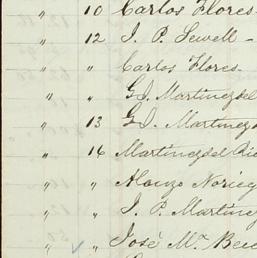 " 10 Carlos Flores
" 12 J. P. Sewell -
" " Carlos Flores-
" " G.J. Martinezdel
" 13 G.J. Martinezd
" 16 Martinezdel Rio
" " Alonzo Norieg
" " J. P. Martine
" " José Mª